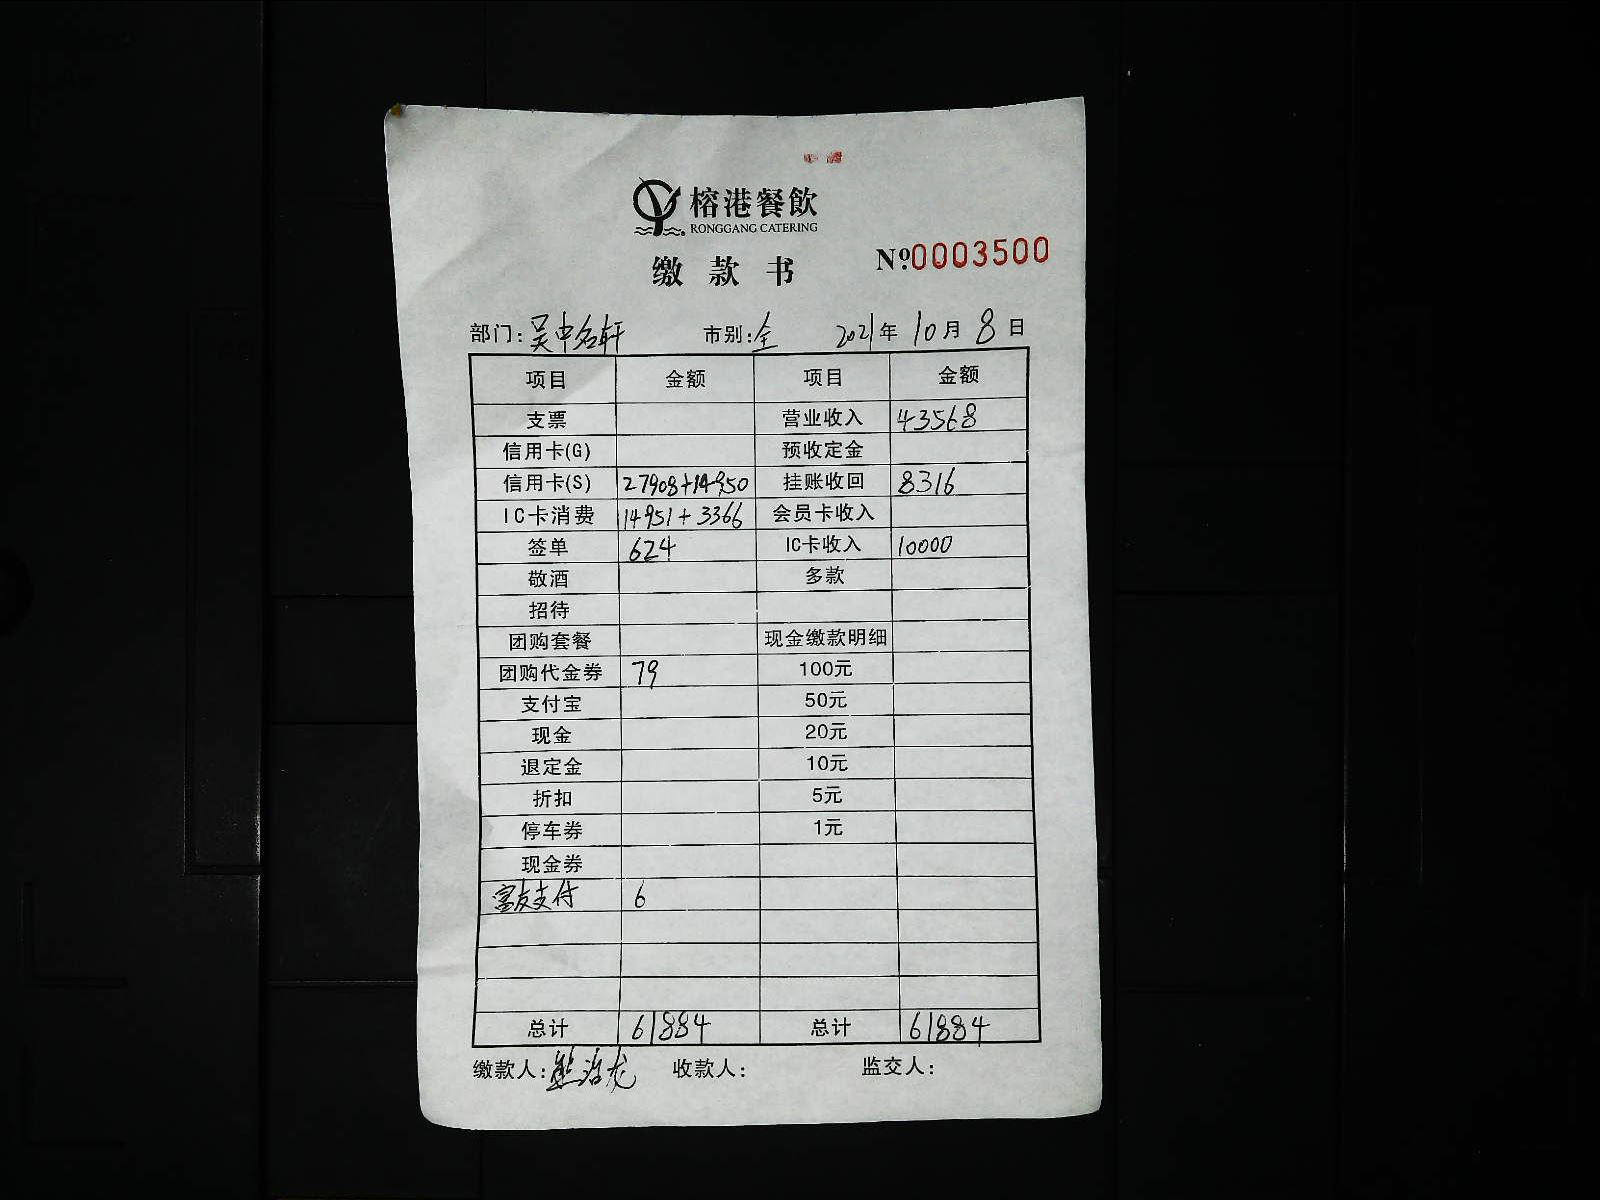 榕港餐飲
RONGGANG CATERING
缴款书
No.0003500
部门:吴中名轩 市别:全 2021年10月8日
项目 金额 项目 金额
支票 营业收入 43568
信用卡(G) 预收定金
信用卡(S) 27908+14950 挂账收回 8316
IC卡消费 14951+3366 会员卡收入
签单 624 IC卡收入 10000
敬酒 多款
招待
团购套餐 现金缴款明细
团购代金券 79 100元
支付宝 50元
现金 20元
退定金 10元
折扣 5元
停车券 1元
现金券
富友支付 6
总计 61884 总计 61884
缴款人:熊治龙 收款人: 监交人: